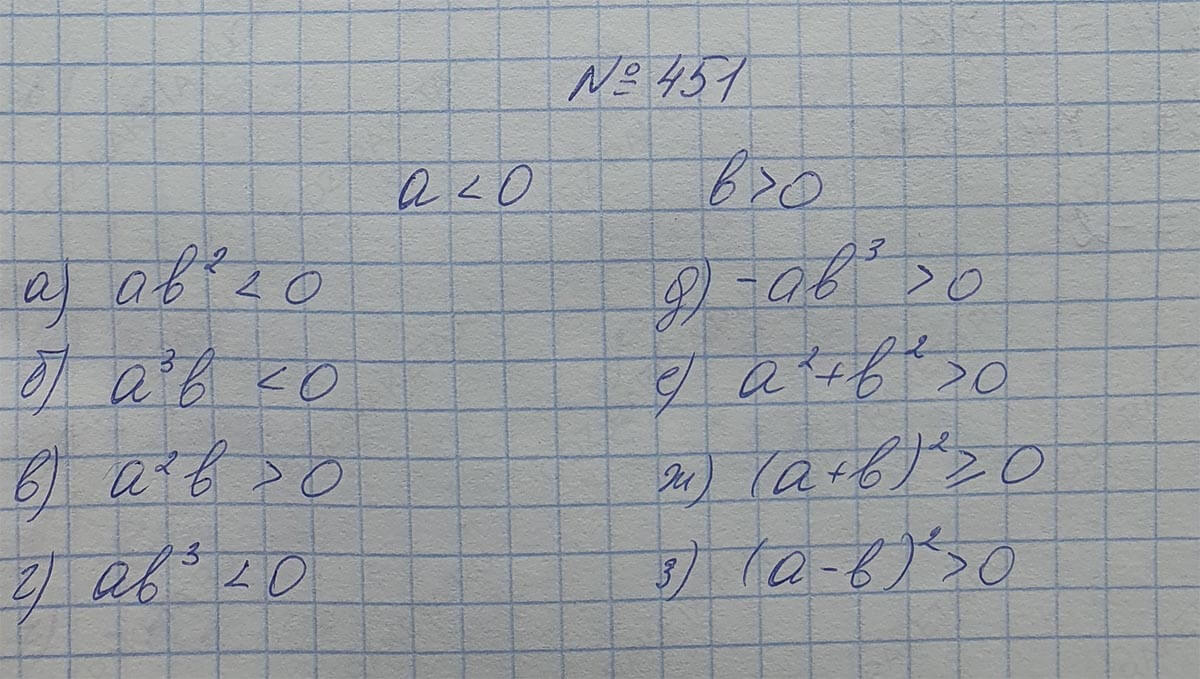 № 451
a < 0 b > 0
а) ab² < 0
б) a³b < 0
в) a²b > 0
г) ab³ < 0
д) -ab³ > 0
е) a² + b² > 0
ж) (a + b)² ≥ 0
з) (a - b)² > 0